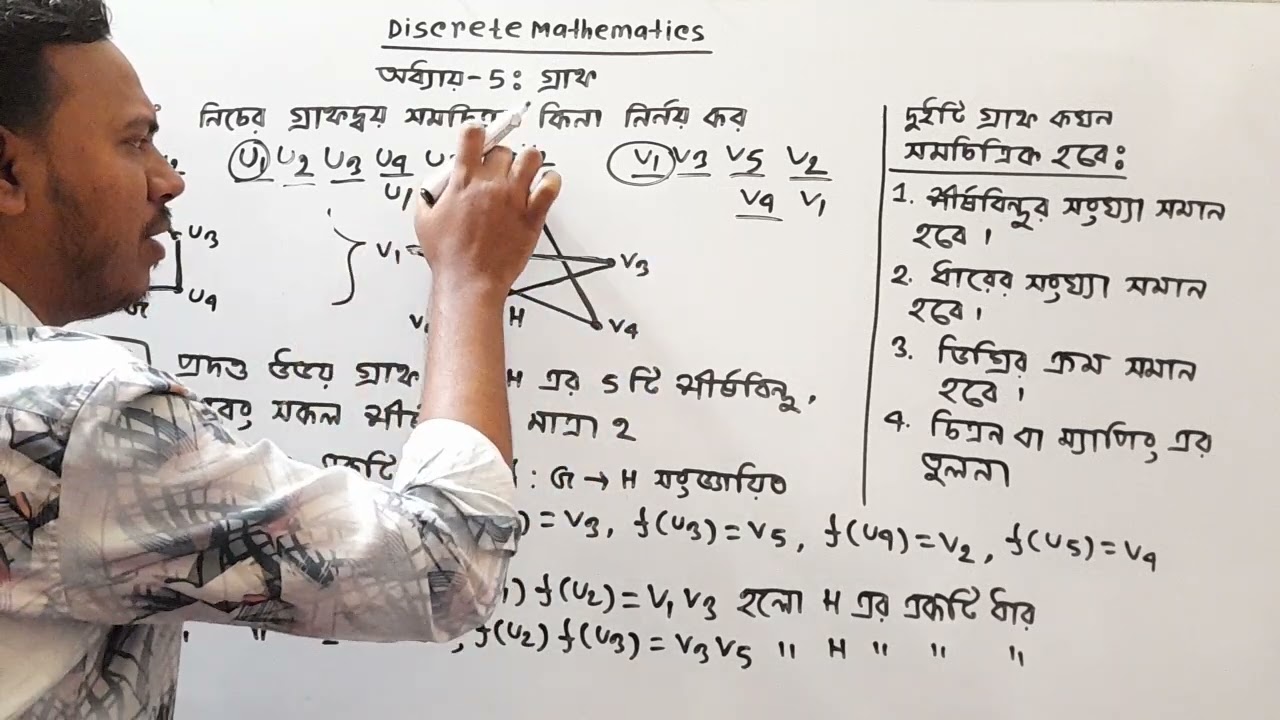 Discrete Mathematics
অধ্যায়-5: গ্রাফ
নিচের গ্রাফদ্বয় কিনা নির্নয় কর
U₁ U₂ U₃ U₄
U₁
V₁ V₃ V₅ V₂
V₄ V₁
U₃
U₄
G
V₁
V₃
H
V₄
প্রদত্ত উভয় গ্রাফ H এর 5 টি শীর্ষবিন্দু,
সকল মাত্রা 2
একটি : G → H সংজ্ঞায়িত
= V₃, f(U₃) = V₅, f(U₄) = V₂, f(U₅) = V₄
) f(U₂) = V₁ V₃ হলো H এর একটি ধার
" , f(U₂) f(U₃) = V₃ V₅ " H " " "
দুইটি গ্রাফ কখন
সমচিত্রিক হবে:
1. শীর্ষবিন্দুর সংখ্যা সমান
হবে।
2. ধারের সংখ্যা সমান
হবে।
3. ডিগ্রির ক্রম সমান
হবে।
4. চিত্রন বা ম্যাপিং এর
তুলনা